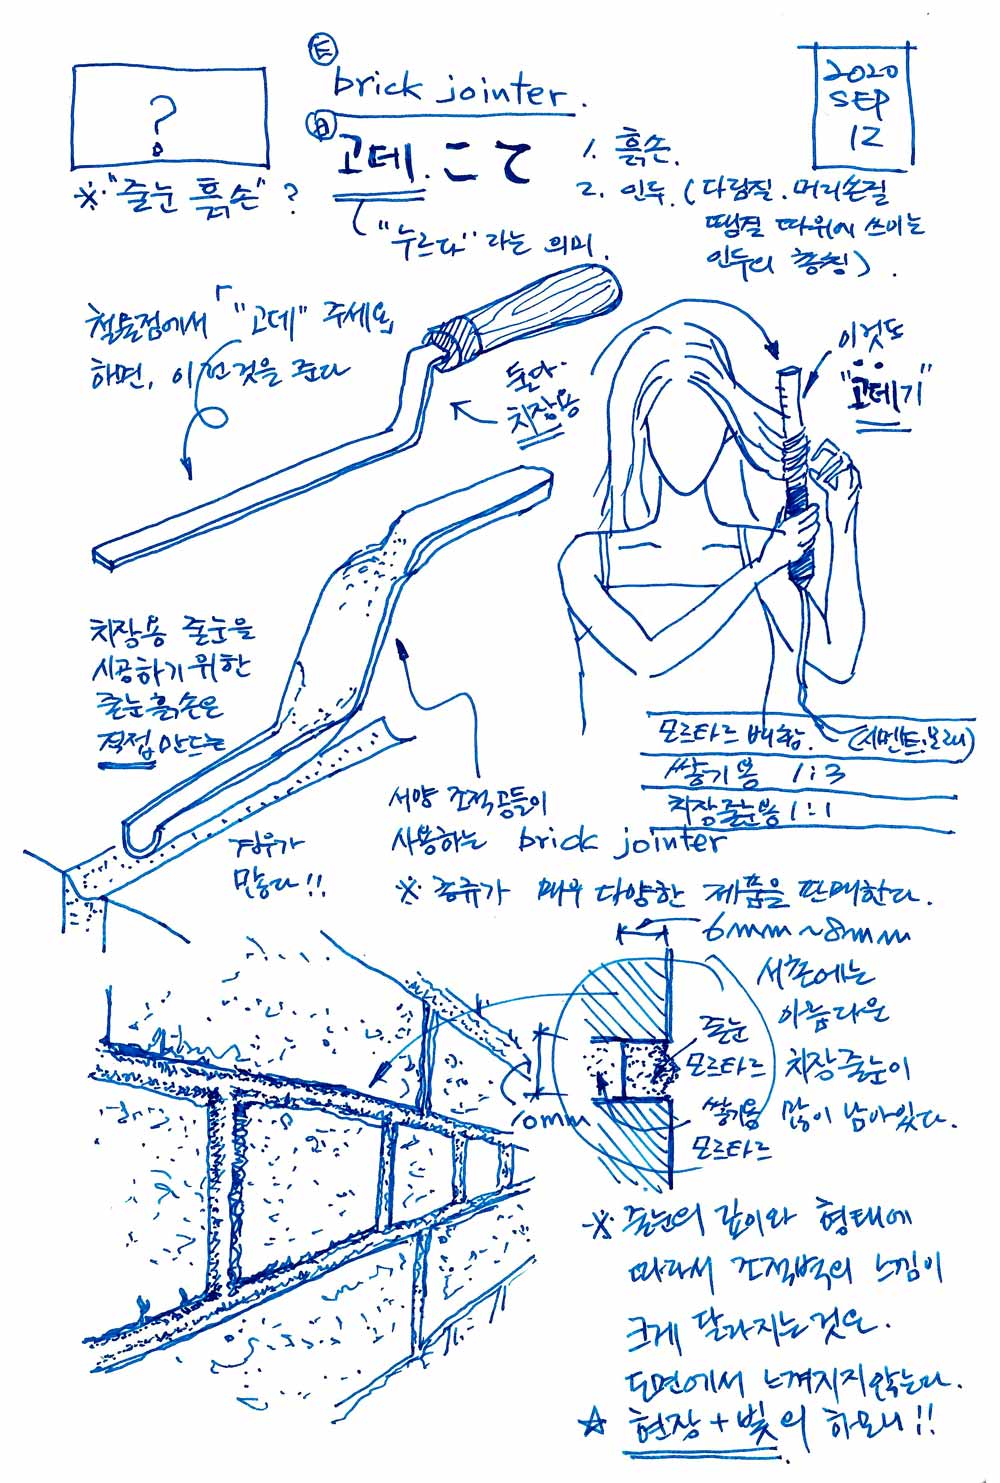 ?
※ "줄눈 흙손" ?
Ⓔ
brick jointer.
Ⓙ
고데. こて
"누르다" 라는 의미.
1. 흙손.
2. 인두. (다림질. 머리손질
땜질 따위에 쓰이는
인두의 총칭).
2020
SEP
12
철물점에서 「"고데" 주세요」
하면, 이런것을 준다
둘다.
치장용
이것도
"고데기"
치장용 줄눈을
시공하기 위한
줄눈흙손은
직접 만드는
경우가
많다!!
서양 조적공들이
사용하는 brick jointer
※ 종류가 매우 다양한 제품을 판매한다.
모르타르 배합. (시멘트:모래)
쌓기용 1:3
치장줄눈용 1:1
6mm~8mm
10mm
줄눈
모르타르
쌓기용
모르타르
서촌에는
아름다운
치장줄눈이
많이 남아있다.
※ 줄눈의 깊이와 형태에
따라서 조적벽의 느낌이
크게 달라지는 것은.
도면에서 느껴지지 않는다.
☆ 현장 + 빛의 하모니!!